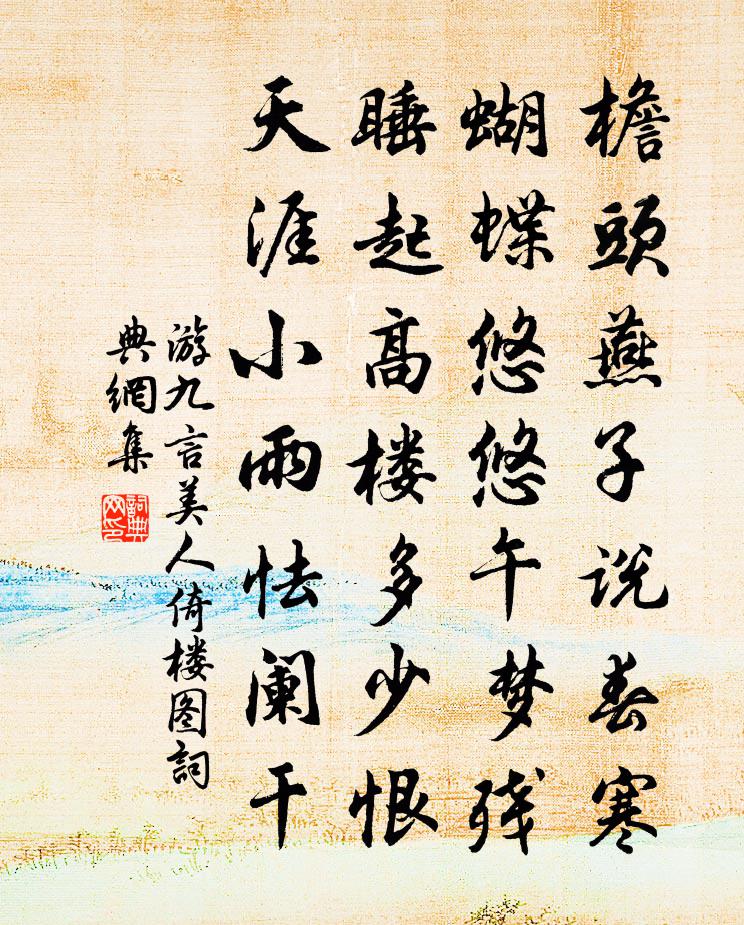 檐頭燕子説春寒
蝴蝶悠悠午梦残
睡起高楼多少恨
天涯小雨怯阑干
游九言美人倚楼图詞
典網集
詞典網印